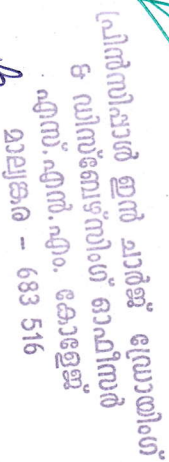 പ്രിൻസിപ്പാൾ ഇൻ ചാർജ്ജ് ഡ്രോയിംഗ്
& ഡിസ്ബേഴ്സിംഗ് ഓഫീസർ
എസ്.എൻ.എം. കോളേജ്
മാല്യങ്കര - 683 516